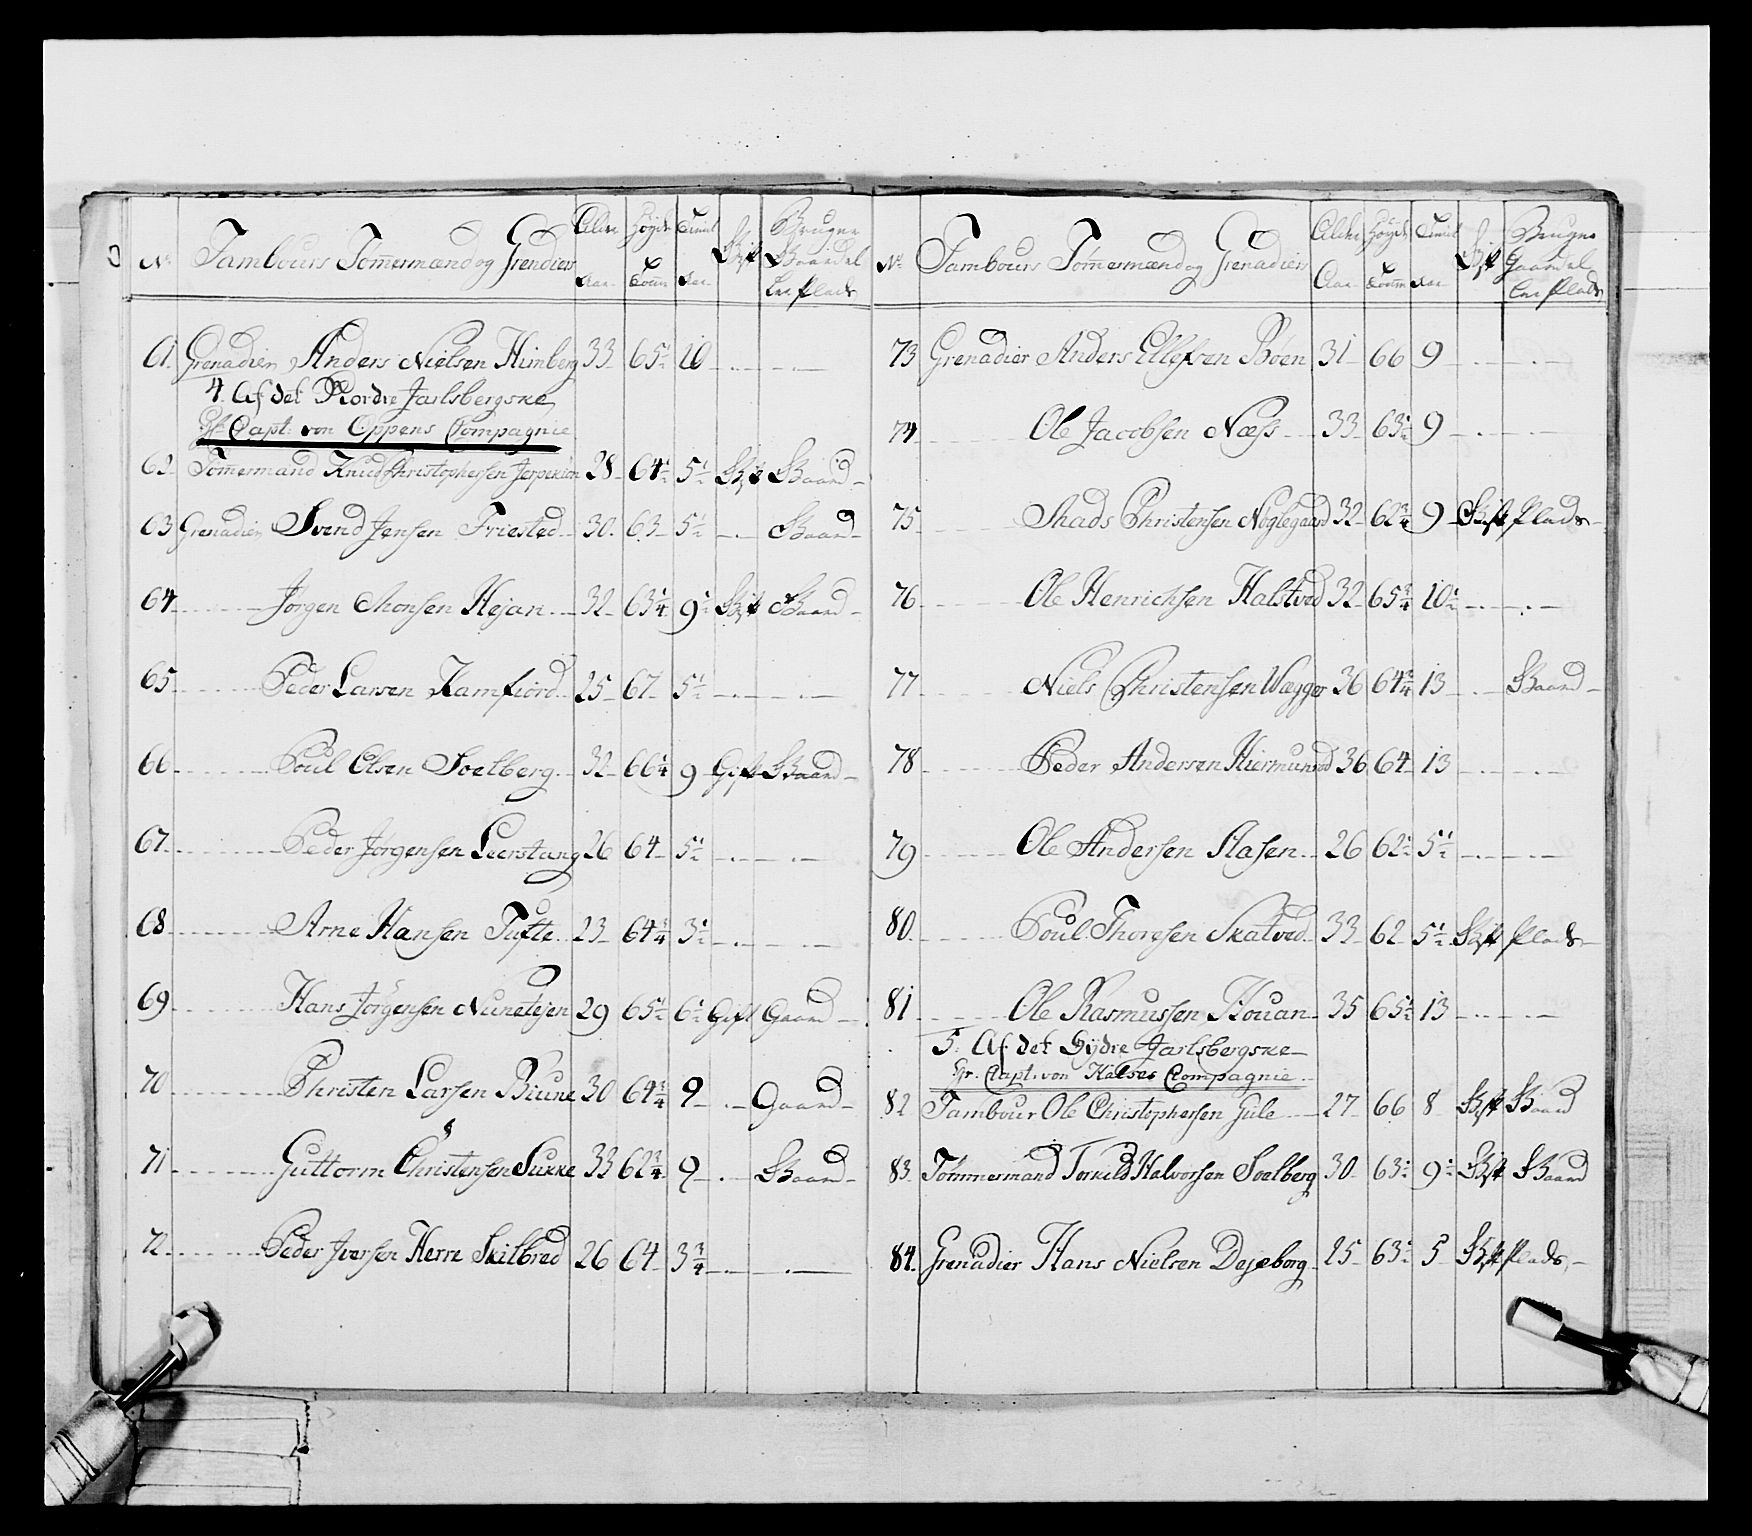 No Tambours Tömermænd og Grendiers Alder Aar Høyde Tomm Tienist Aar Gift Bruger Gaard el Lee Plads
61 Grenadier Anders Nielsen Himberg 33 65½ 10
4. Af det Nordre Jarlsbergske
Gr: Capt: von Oppens Compagnie
62 Tömermand Knud Christophersen 28 64½ 5½ Gift Gaard
63 Grenadier Svend Jensen Friested 30 63 5½ Gaard
64 Jörgen Monsen Hejan 32 63¼ 9½ Gift Gaard
65 Peder Larsen Kamfiord 25 67 5½
66 Poul Olsen Soelberg 32 66¼ 9 Gift Gaard
67 Peder Jörgensen Leerstang 26 64 5½
68 Arne Hansen Tufte 23 64¾ 3½
69 Hans Jörgensen 29 65½ 6½ Gift Gaard
70 Christen Larsen Biune 30 64¾ 9 Gaard
71 Guttorm Christensen Sukke 33 62¾ 9 Gaard
72 Peder Iversen Herre Skilbred 26 64 3¾
No Tambours Tömermænd og Grenadiers Alder Aar Høyde Tomm Tienist Aar Gift Bruger Gaard el Lee Plads
73 Grenadier Anders Ellefsen Böen 31 66 9
74 Ole Jacobsen Næss 33 63½ 9
75 Mads Christensen Nöglegaard 32 62¾ 9 Gift Plads
76 Ole Henrichsen Halstved 32 65¾ 10½
77 Niels Christensen Wægger 36 64¾ 13 Gaard
78 Peder Andersen Hiermunrod 36 64 13
79 Ole Andersen Aasen 26 62½ 5½
80 Poul Thoresen Skatved 33 62 5½ Gift Plads
81 Ole Rasmussen Kouan 35 65½ 13
5. Af det Sydre Jarlsbergske
Gr. Capt. von Kalses Compagnie
82 Tambour Ole Christophersen Gule 27 66 8 Gift Gaard
83 Tömmermand Torkild Halvorsen Soelberg 30 63½ 9½ Gift Gaard
84 Grenadier Hans Nielsen Dejeborg 25 63½ 5 Gift Plads